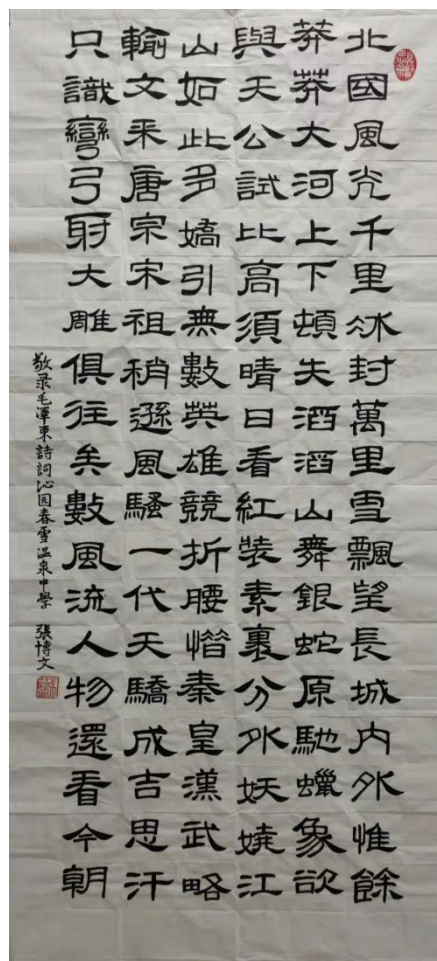 北國風光千里冰封萬里雪飄望長城内外惟餘
莽莽大河上下頓失滔滔山舞銀蛇原馳蠟象欲
與天公試比高須晴日看紅裝素裹分外妖嬈江
山如此多嬌引無數英雄競折腰惜秦皇漢武略
輸文采唐宗宋祖稍遜風騷一代天驕成吉思汗
只識彎弓射大雕俱往矣數風流人物還看今朝
敬录毛澤東詩詞沁园春雪温泉中學 張博文